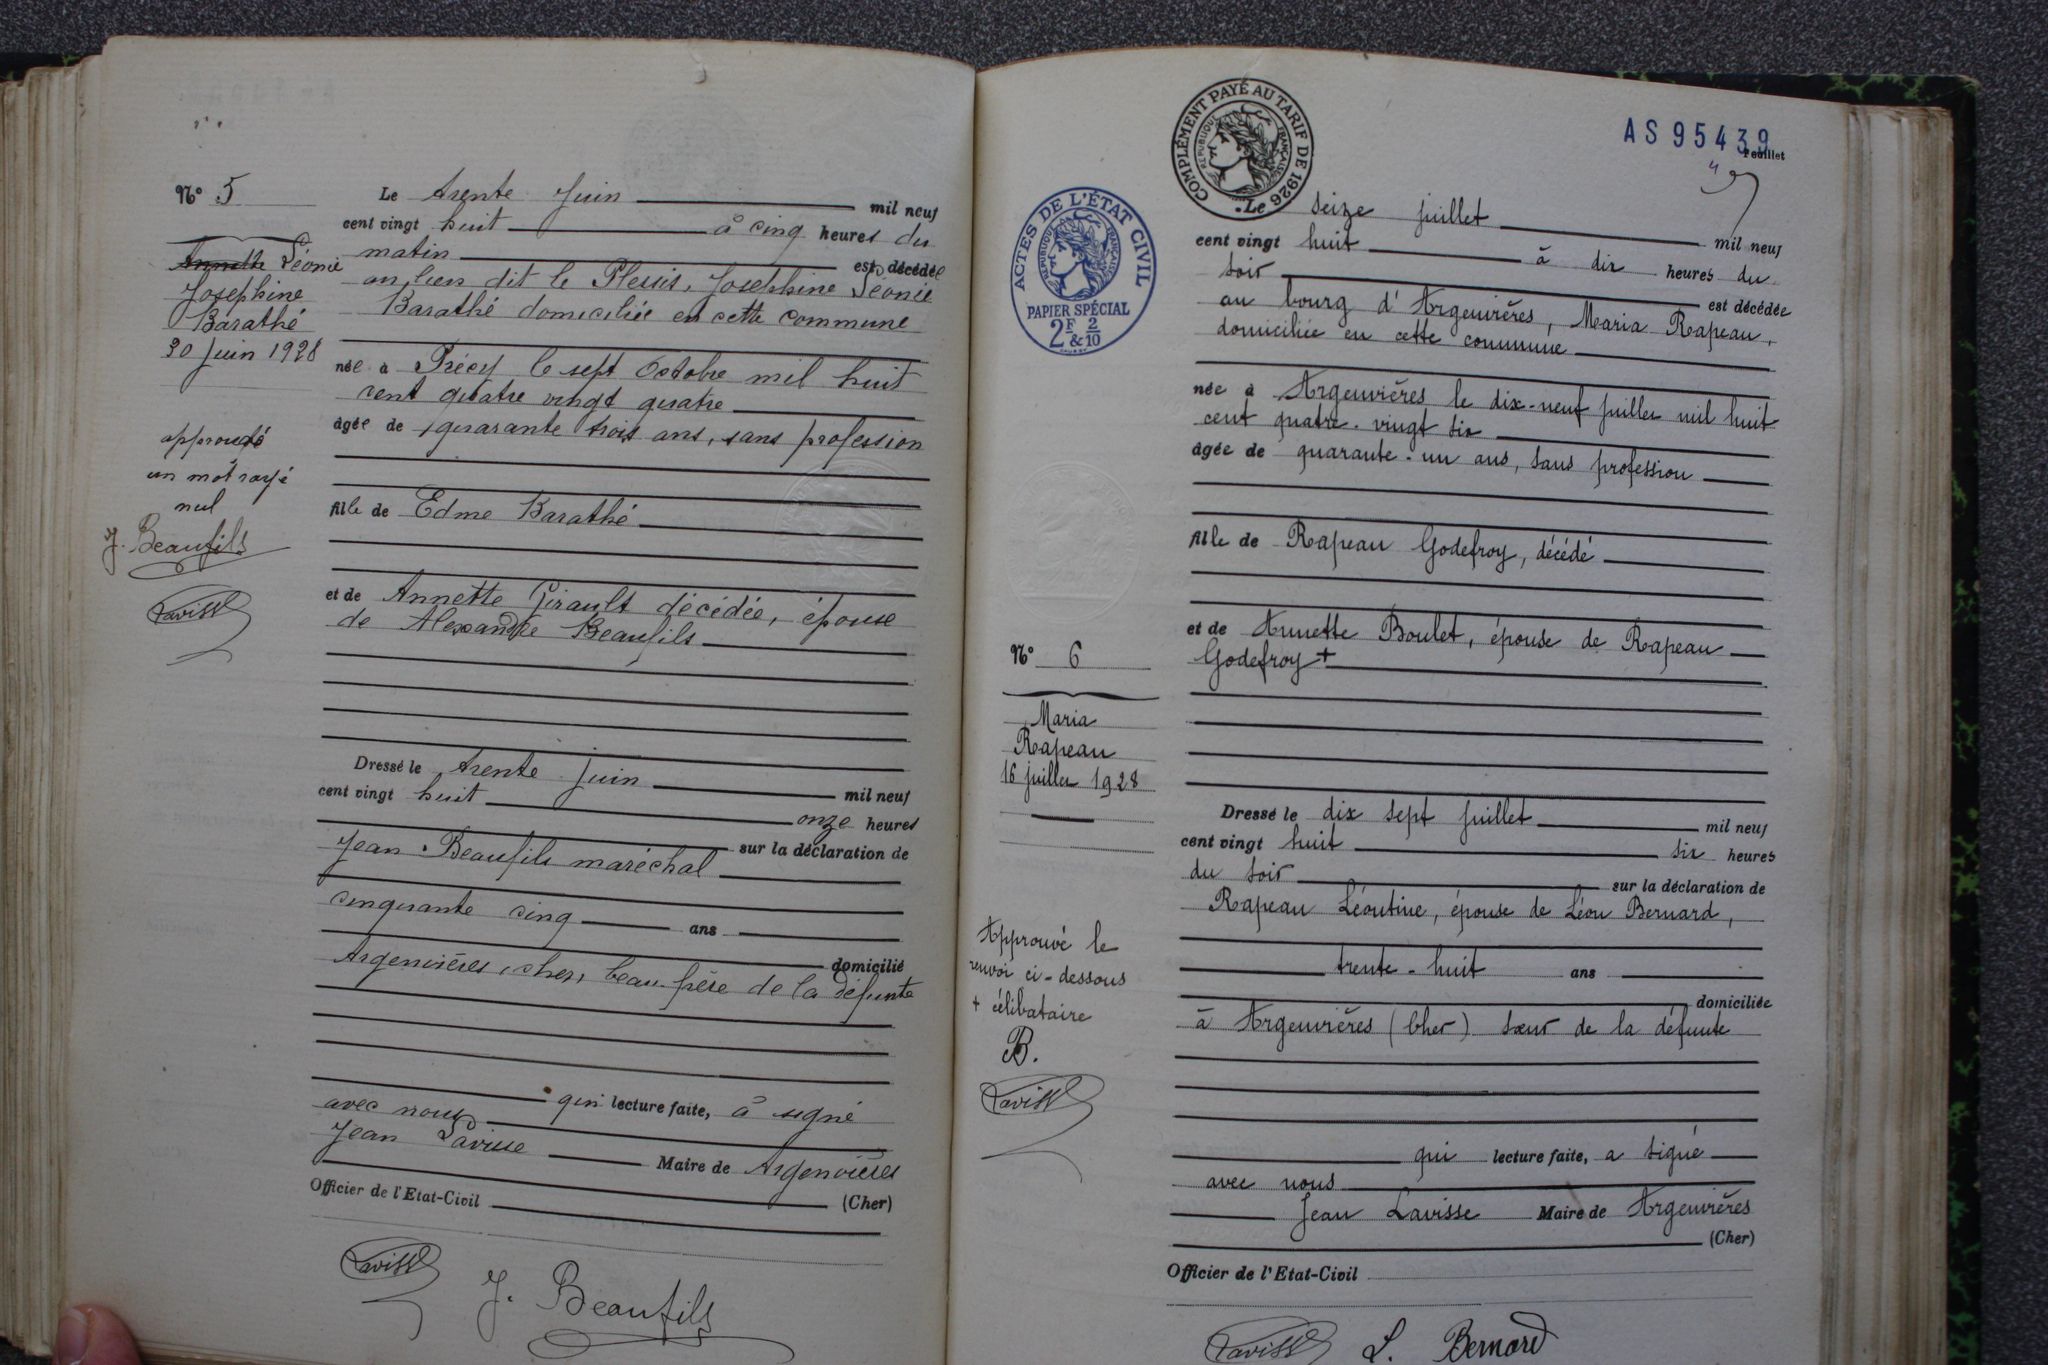 N° 5
Annette Léonie
Josephine
Barathé
30 Juin 1928
approuvé
un mot rayé
nul
J. Beaufils
Lavisse
Le trente Juin mil neuf
cent vingt huit à cinq heures du
matin est décédée
au lieu dit le Plessis, Josephine Léonie
Barathé domiciliée en cette commune
née à Précy le sept Octobre mil huit
cent quatre vingt quatre
âgée de quarante trois ans, sans profession
fille de Edme Barathé
et de Annette Girault décédée, épouse
de Alexandre Beaufils
Dressé le trente juin mil neuf
cent vingt huit
onze heures
sur la déclaration de
Jean Beaufils maréchal
cinquante cinq ans
domicilié
Argenvières, cher, beau-père de la défunte
qui lecture faite, à signé
avec nous
Jean Lavisse Maire de Argenvières
(Cher)
Officier de l'Etat-Civil
Lavisse J. Beaufils
COMPLÉMENT PAYÉ AU TARIF DE 1926
RÉPUBLIQUE FRANÇAISE
ACTES DE L'ÉTAT CIVIL
RÉPUBLIQUE FRANÇAISE
PAPIER SPÉCIAL
2F & 2/10
AS 95439
Feuillet
N° 6
Maria
Rapeau
16 juillet 1928
Approuvé le
renvoi ci-dessous
+ célibataire
B.
Lavisse
Le seize juillet mil neuf
cent vingt huit à dix heures du
soir est décédée
au bourg d'Argenvières, Maria Rapeau,
domiciliée en cette commune
née à Argenvières le dix-neuf juillet mil huit
cent quatre-vingt six
âgée de quarante-un ans, sans profession
fille de Rapeau Godefroy, décédé
et de Annette Boulet, épouse de Rapeau
Godefroy +
Dressé le dix sept juillet mil neuf
cent vingt huit six heures
du soir sur la déclaration de
Rapeau Léontine, épouse de Léon Bernard,
trente-huit ans
domiciliée
à Argenvières (Cher) sœur de la défunte
qui lecture faite, a signé
avec nous
Jean Lavisse Maire de Argenvières
(Cher)
Officier de l'Etat-Civil
Lavisse L. Bernard